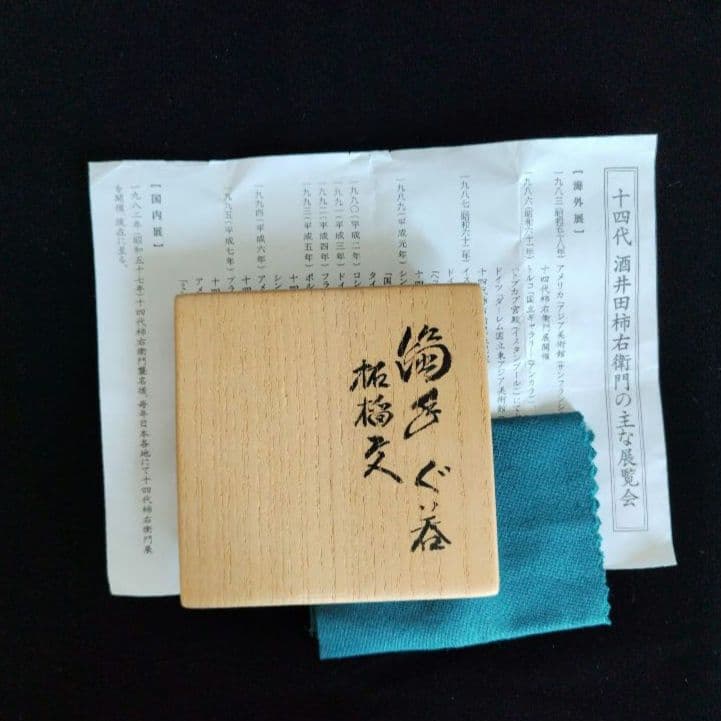 十四代 酒井田柿右衛門の主な展覧会
【海外展】
一九八三(昭和五十八年) アメリカ(アジア美術館(サンフランシ
十四代柿右衛門展開催
一九八六(昭和六十一年) トルコ(国立ギャラリー(アンカラ)
トプカプ宮殿(イスタンブール)にて
ドイツ(ダーレム国立東アジア美術館
一九八七(昭和六十二年)
一九八九(平成元年)
一九九〇(平成二年) ロン
一九九一(平成三年) ドイ
一九九二(平成四年) フラ
一九九三(平成五年) ポル
一九九四(平成六年)
一九九五(平成七年)
【国内展】
一九八二年(昭和五十七年)十四代柿右衛門襲名後、毎年日本各地にて十四代柿右衛門展
を開催、現在に至る。
濁手 ぐい呑
柘榴文